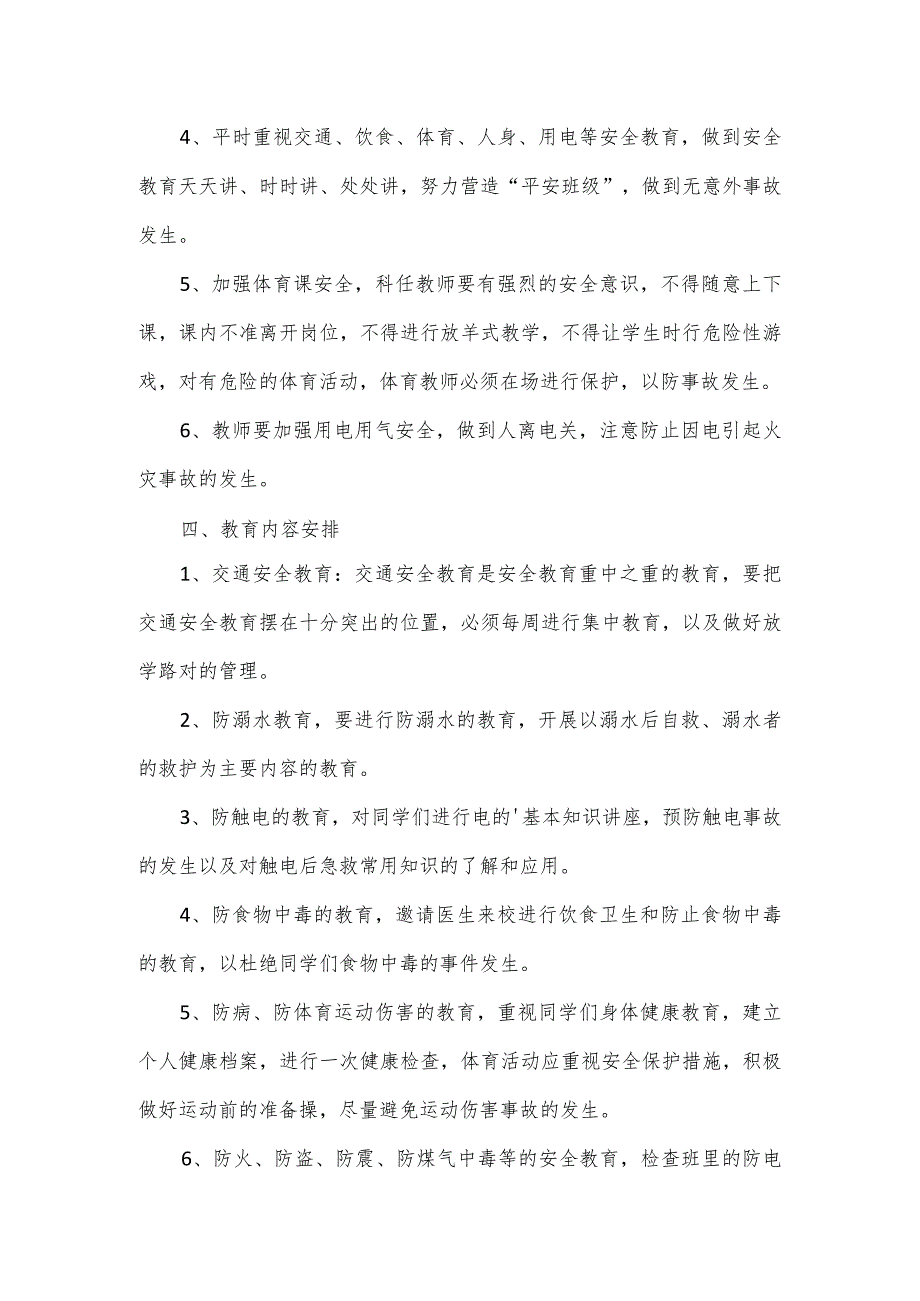 4、平时重视交通、饮食、体育、人身、用电等安全教育，做到安全
教育天天讲、时时讲、处处讲，努力营造“平安班级”，做到无意外事故
发生。
5、加强体育课安全，科任教师要有强烈的安全意识，不得随意上下
课，课内不准离开岗位，不得进行放羊式教学，不得让学生时行危险性游
戏，对有危险的体育活动，体育教师必须在场进行保护，以防事故发生。
6、教师要加强用电用气安全，做到人离电关，注意防止因电引起火
灾事故的发生。
四、教育内容安排
1、交通安全教育：交通安全教育是安全教育重中之重的教育，要把
交通安全教育摆在十分突出的位置，必须每周进行集中教育，以及做好放
学路对的管理。
2、防溺水教育，要进行防溺水的教育，开展以溺水后自救、溺水者
的救护为主要内容的教育。
3、防触电的教育，对同学们进行电的'基本知识讲座，预防触电事故
的发生以及对触电后急救常用知识的了解和应用。
4、防食物中毒的教育，邀请医生来校进行饮食卫生和防止食物中毒
的教育，以杜绝同学们食物中毒的事件发生。
5、防病、防体育运动伤害的教育，重视同学们身体健康教育，建立
个人健康档案，进行一次健康检查，体育活动应重视安全保护措施，积极
做好运动前的准备操，尽量避免运动伤害事故的发生。
6、防火、防盗、防震、防煤气中毒等的安全教育，检查班里的防电